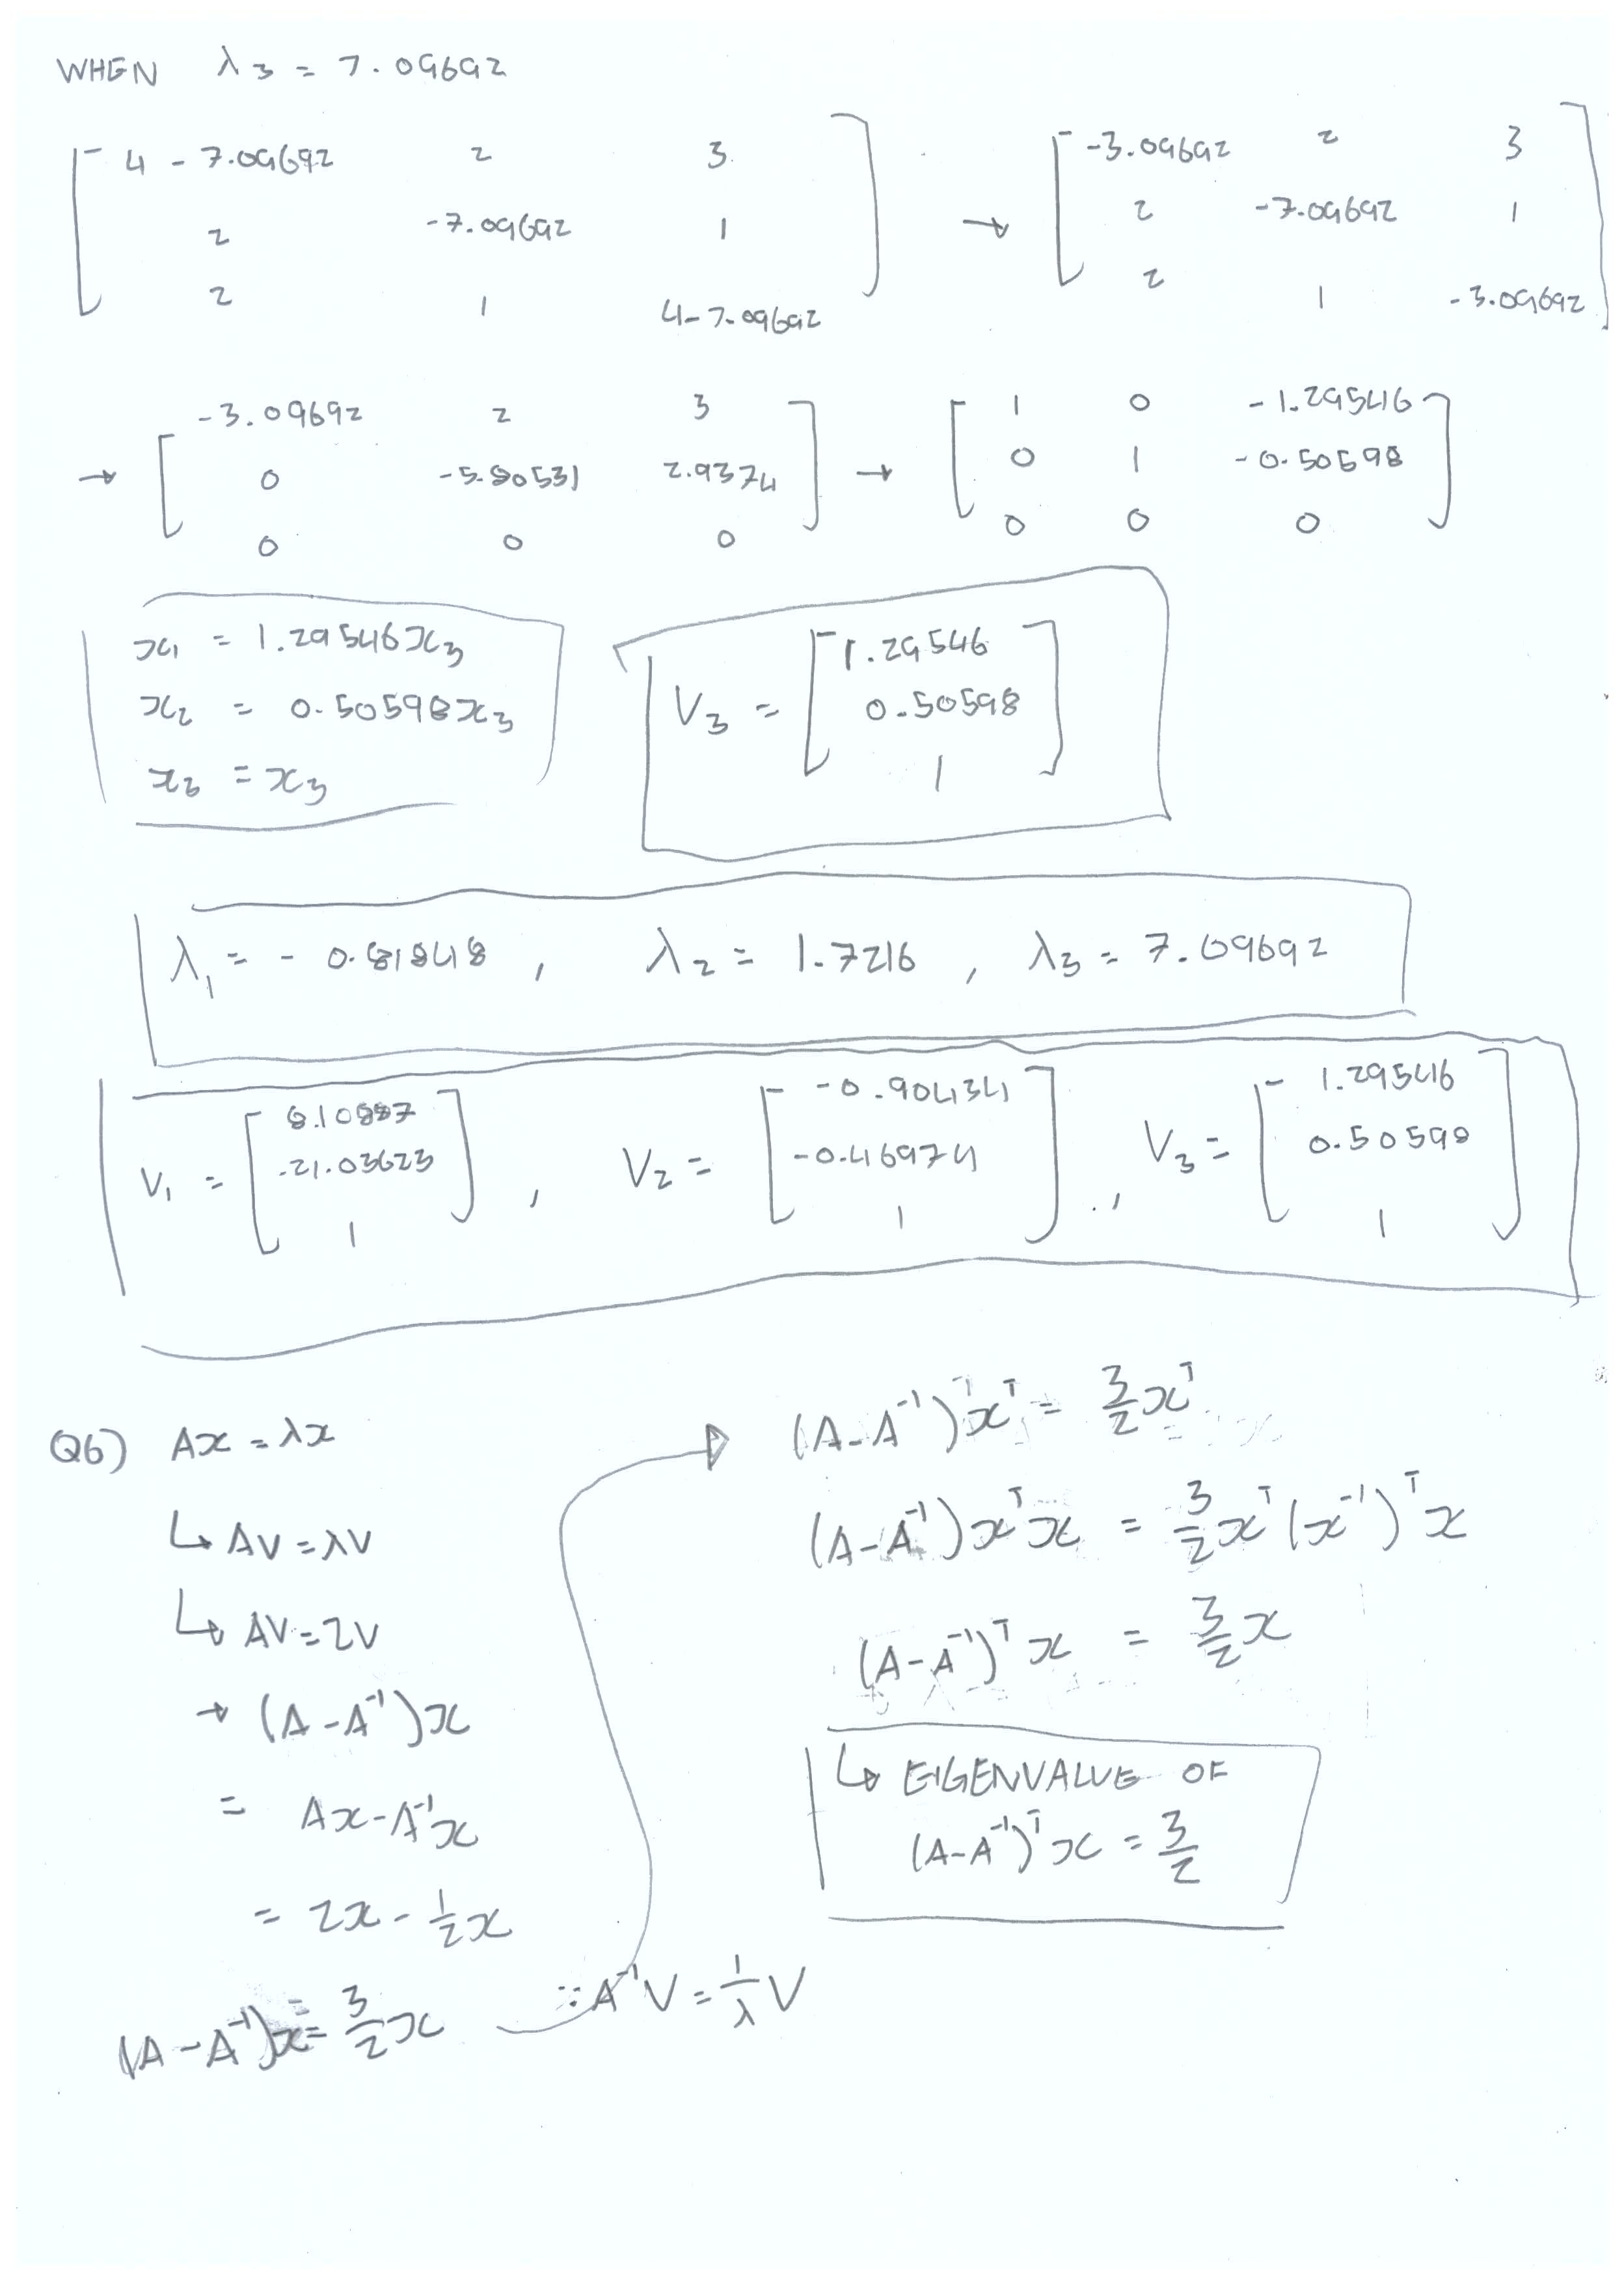 WHEN λ3 = 7.09692
[ 4 - 7.09692 2 3 ] → [ -3.09692 2 3 ]
[ 2 -7.09692 1 ] [ 2 -7.09692 1 ]
[ 2 1 4-7.09692 ] [ 2 1 -3.09692 ]
→ [ -3.09692 2 3 ] → [ 1 0 -1.29546 ]
[ 0 -5.80531 2.9374 ] [ 0 1 -0.50598 ]
[ 0 0 0 ] [ 0 0 0 ]
x1 = 1.29546x3
x2 = 0.50598x3
x3 = x3
V3 = [ 1.29546
0.50598
1 ]
λ1 = - 0.81848 , λ2 = 1.7216 , λ3 = 7.09692
V1 = [ 8.10887
-21.03623
1 ] ,
V2 = [ -0.90434
-0.46974
1 ] ,
V3 = [ 1.29546
0.50598
1 ]
Q6) Ax = λx
↳ AV = λV
↳ AV = 2V
→ (A - A⁻¹)x
= Ax - A⁻¹x
= 2x - ½x
(A - A⁻¹)x = 3/2 x
∵ A⁻¹V = 1/λ V
(A - A⁻¹)ᵀxᵀ = 3/2 xᵀ
(A - A⁻¹)xᵀx = 3/2 xᵀ(x⁻¹)ᵀx
(A - A⁻¹)ᵀx = 3/2 x
↳ EIGENVALUE OF
(A - A⁻¹)ᵀx = 3/2